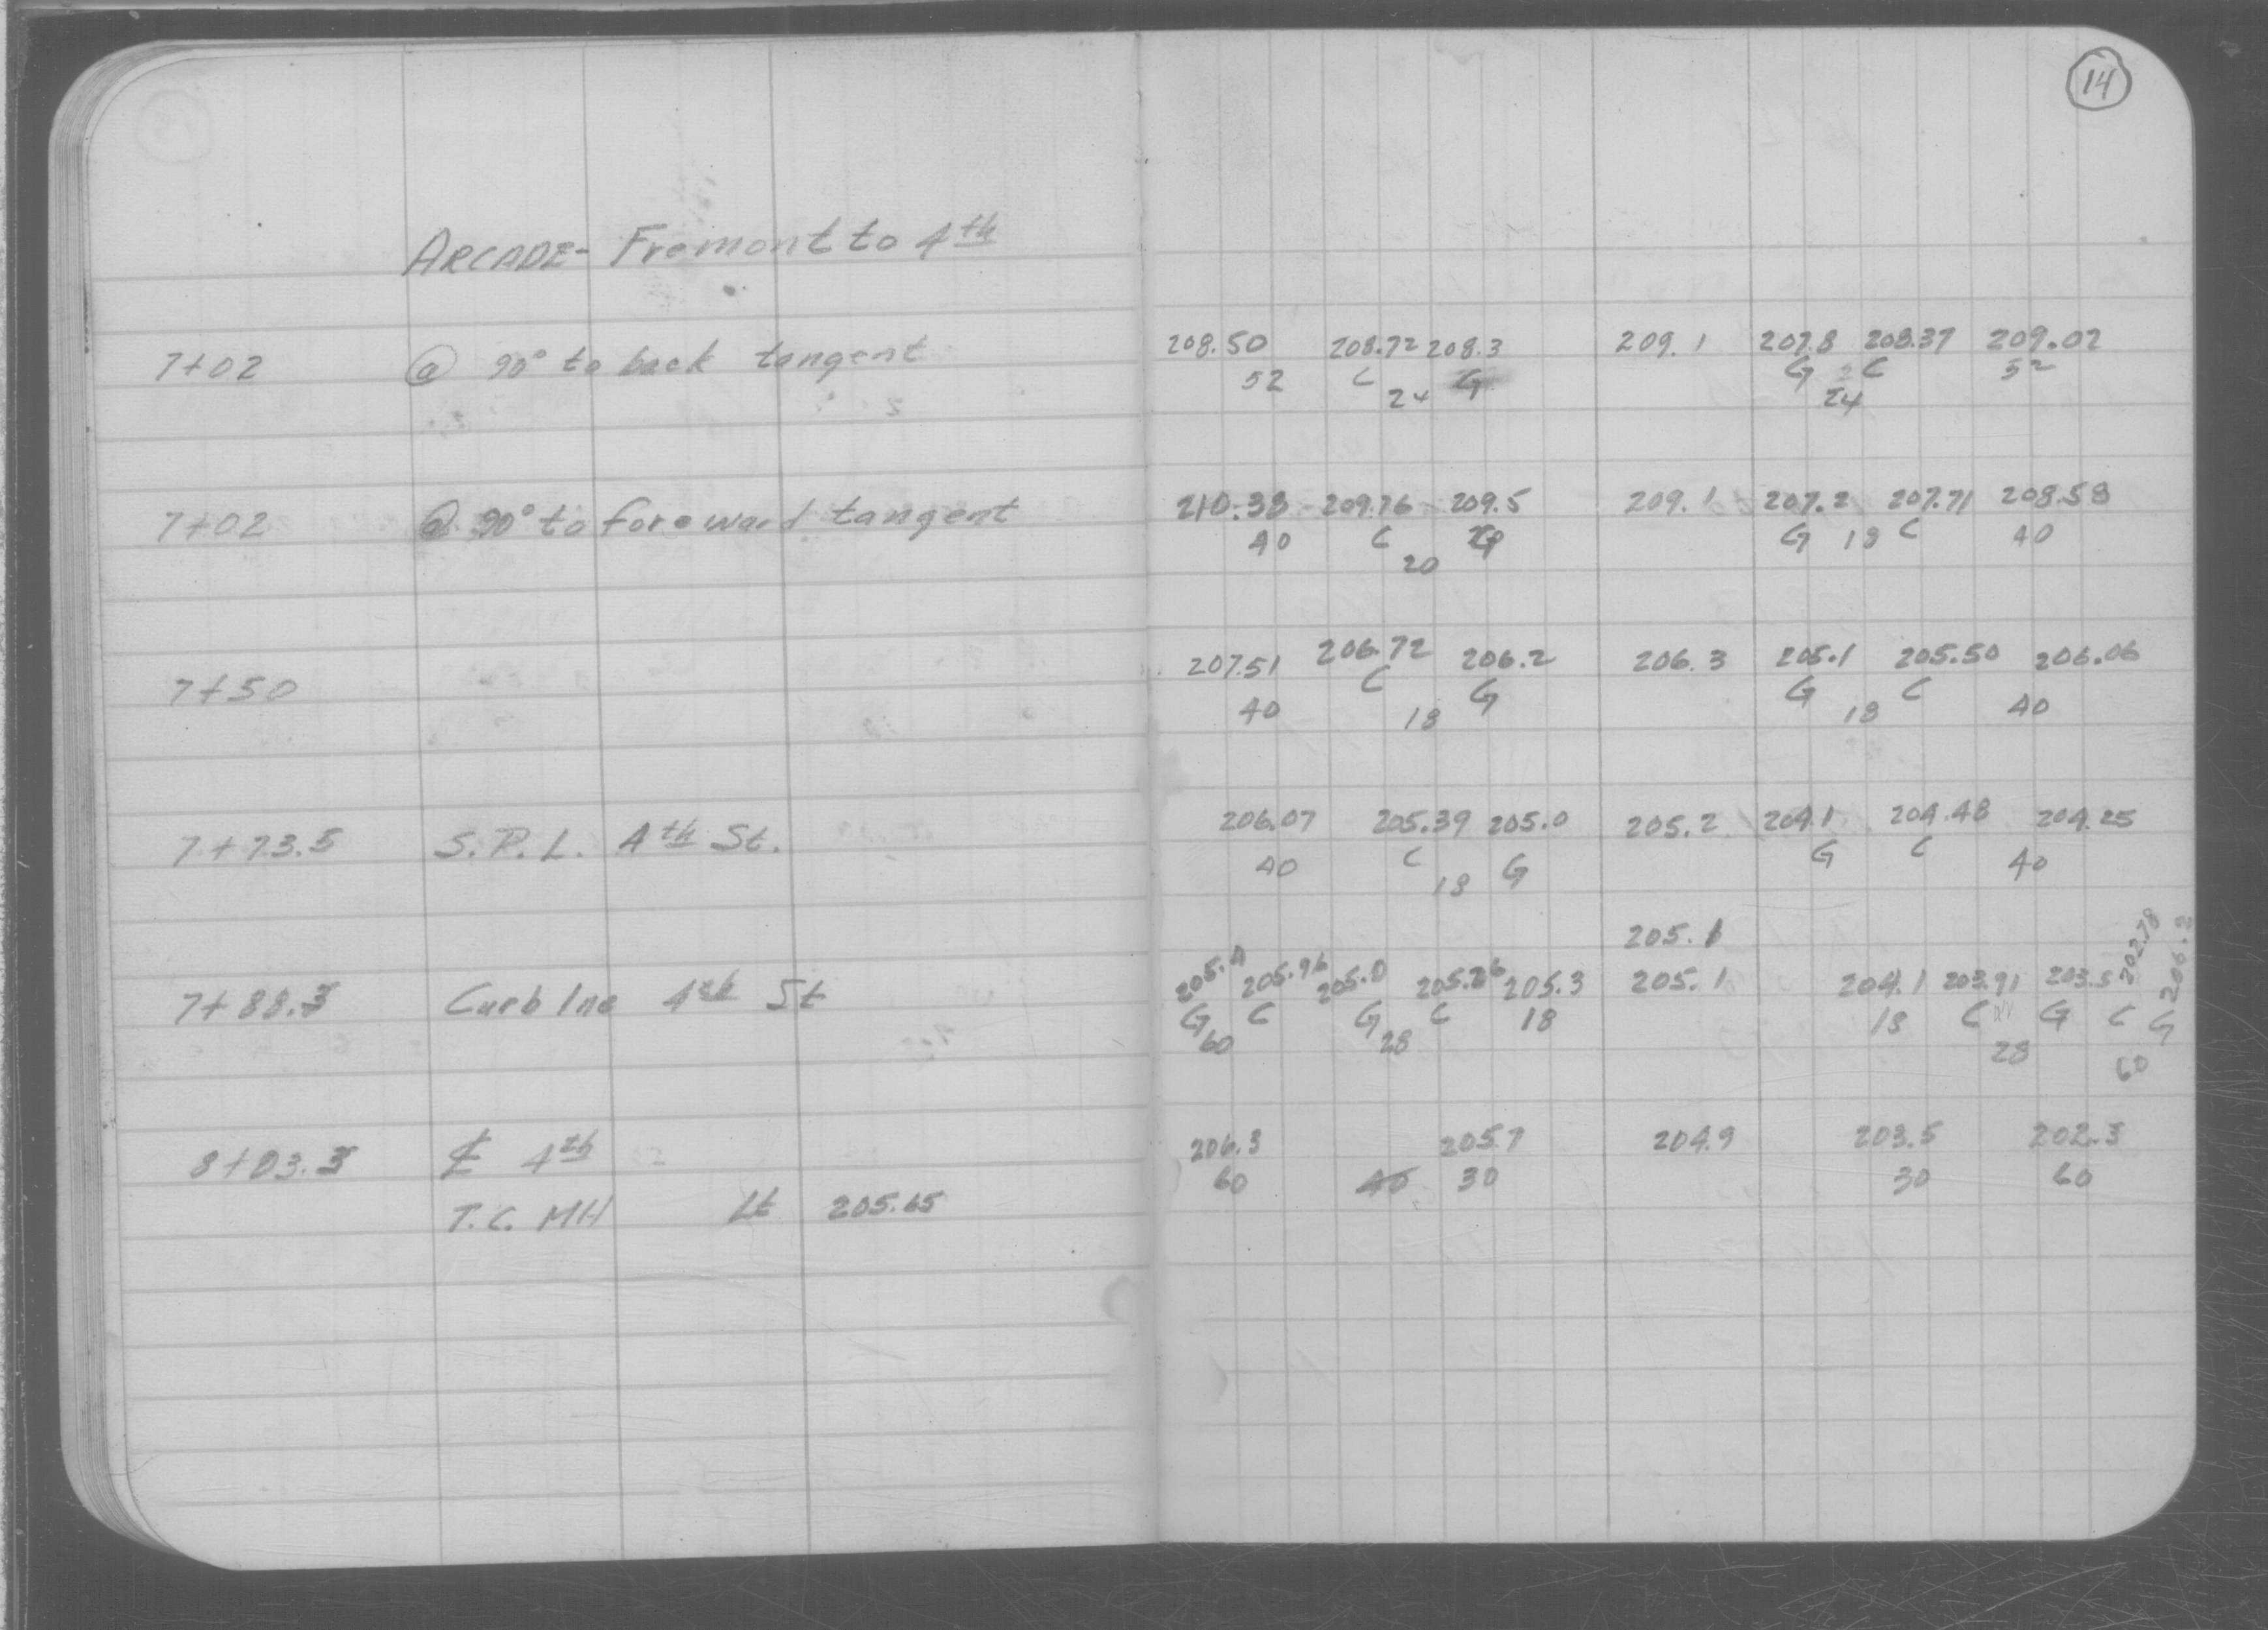 14
ARCADE- Fremont to 4th
7+02 @ 90° to back tangent 208.50 208.72 208.3 209.1 207.8 208.37 209.02
52 C 24 G G 24 C 52
7+02 @ 90° to foreward tangent 210.38 209.76 209.5 209.1 207.2 207.71 208.58
40 C 20 G G 18 C 40
7+50 207.51 206.72 206.2 206.3 205.1 205.50 206.06
40 C 18 G G 18 C 40
7+73.5 S.P.L. 4th St. 206.07 205.39 205.0 205.2 204.1 204.48 204.25
40 C 18 G G C 40
205.1
7+88.3 Curb line 4th St 205.4 205.96 205.0 205.76 205.3 205.1 204.1 203.91 203.5 202.78
G 60 C G 28 C 18 18 C 28 G C 60 G
8+03.3 ℄ 4th 206.3 205.7 204.9 203.5 202.3
60 40 30 30 60
T.C. MH Lt 205.65